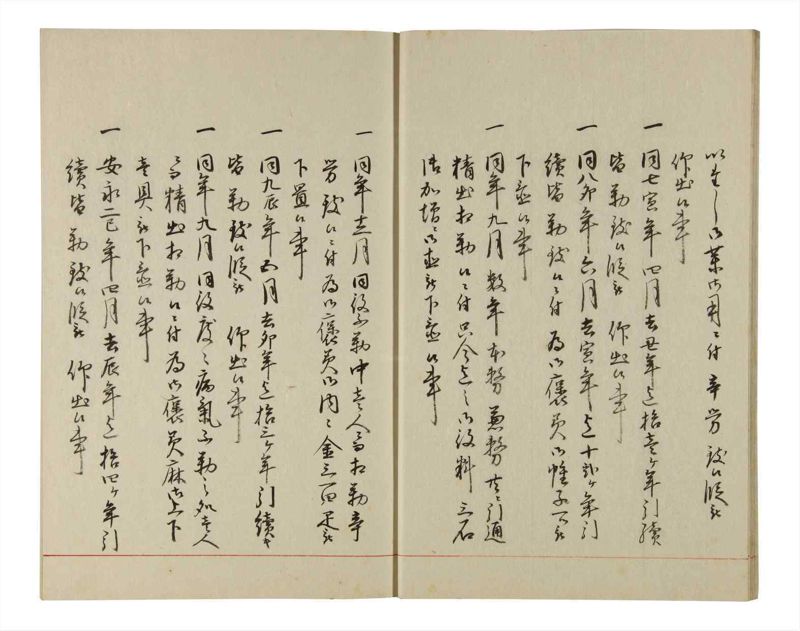 御用ニ付辛労致候段
仰出候事
一同七寅年四月去丑年迄拾壱ヶ年引続
皆勤致候段 仰出候事
一同八卯年六月去寅年迄十弐ヶ年引
続皆勤致候ニ付為御褒美御帷子一
下置候事
一同年九月数年本務兼務共ニ引通
精出相勤候ニ付只今迄之御役料三石
御加増ニ 下置候事
一同年十二月同役不勤中壱人ニ而相勤辛
労致候ニ付為御褒美御内々金三百疋
下置候事
一同九辰年四月去卯年迄拾三ヶ年引続
皆勤致候段 仰出候事
一同年九月同役度々病気不勤之処壱人
ニ而精出相勤候ニ付為御褒美麻上下
壱具 下置候事
一安永二巳年四月去辰年迄拾四ヶ年引
続皆勤致候段 仰出候事